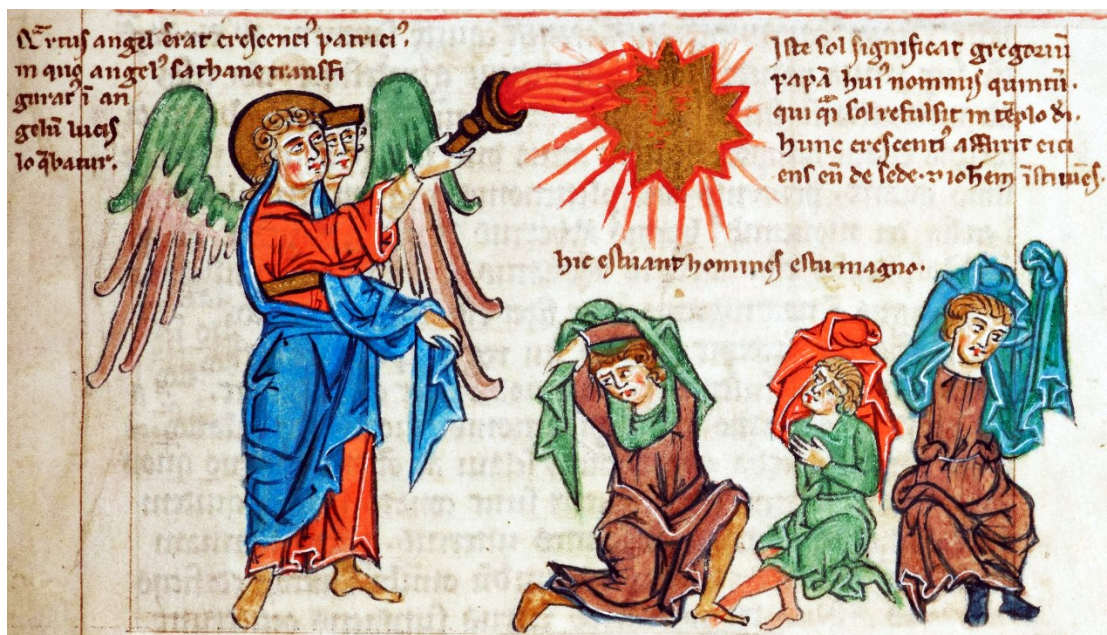 Q̃rtus angel' erat crescenci' patrici'.
in quo angel' sathane transfi
gurat' ī an
gelū lucis
loq̄batur.
Iste sol significat gregoriū
papā hui' nominis quintū.
qui q̄i sol refulsit in tēplo di.
hunc crescenci' affixit eici
ens eū de sede. ⁊ iohem īstituēs.
hic estuant homines estu magno.